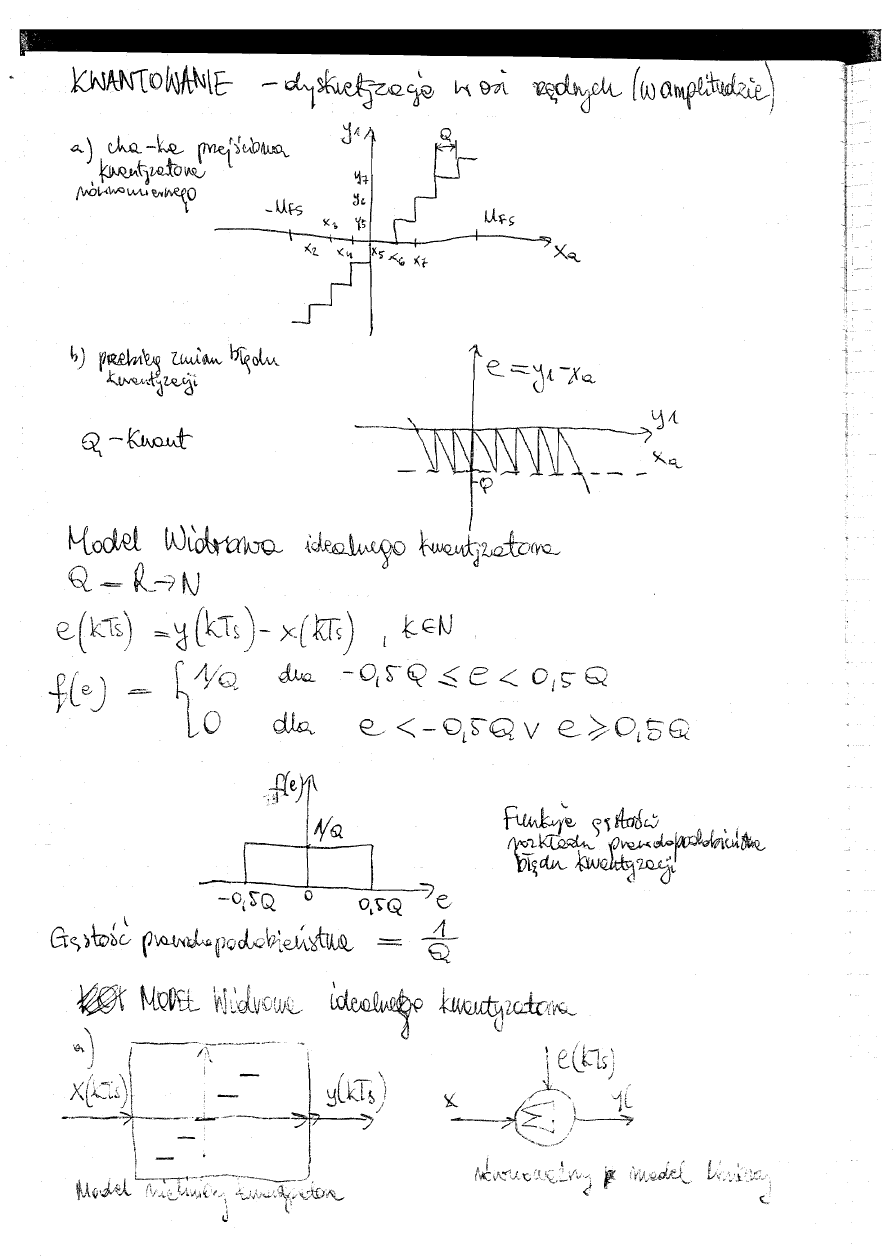 KWANTOWANIE – dyskretyzacja w osi rzędnych (w amplitudzie)
a) cha-ka przejściowa
kwantyzatora
równomiernego
y1
Q
y7
y6
y5
-UFS
UFS
x2
x3
x4
x5
x6
x7
xa
b) przebieg zmian błędu
kwantyzacji
e = y1 - xa
y1
xa
-Q
Q – kwant
Model Widrowa idealnego kwantyzatora
Q – R → N
e(kTs) = y(kTs) - x(kTs) , k∈N
f(e) = { 1/Q dla -0,5Q ≤ e < 0,5Q
0 dla e < -0,5Q ∨ e ≥ 0,5Q
f(e)
1/Q
-0,5Q 0 0,5Q e
Funkcje gęstości
rozkładu prawdopodobieństwa
błędu kwantyzacji
Gęstość prawdopodobieństwa = 1/Q
Model Widrowa idealnego kwantyzatora
a)
x(kTs)
y(kTs)
Model nieliniowy kwantyzatora
e(kTs)
x
Σ
y(
równoważny model liniowy